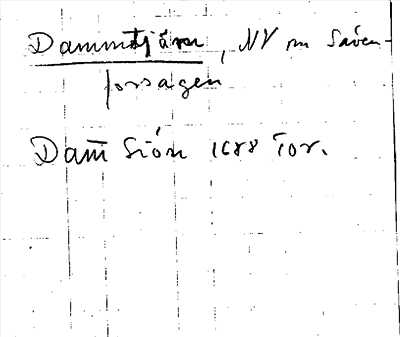 Dammtjärn, NV om Säven-
forsagen
Dam̄ Siön 1688 Tor.